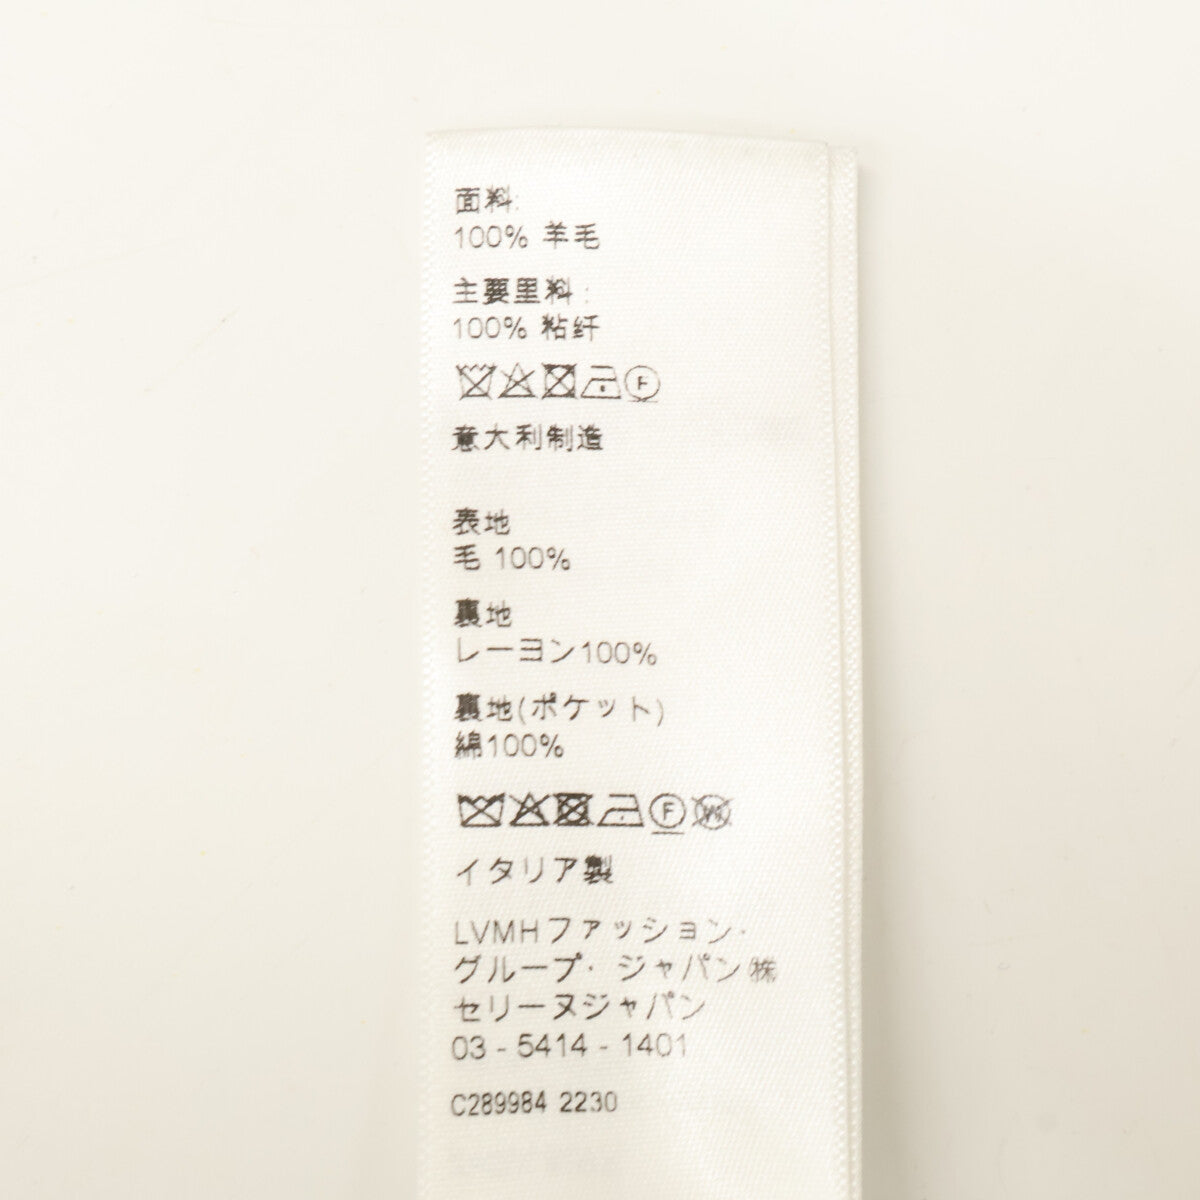 面料:
100% 羊毛
主要里料:
100% 粘纤
F
意大利制造
表地
毛 100%
裏地
レーヨン100%
裏地(ポケット)
綿100%
F W
イタリア製
LVMHファッション・
グループ・ジャパン㈱
セリーヌジャパン
03 - 5414 - 1401
C289984 2230